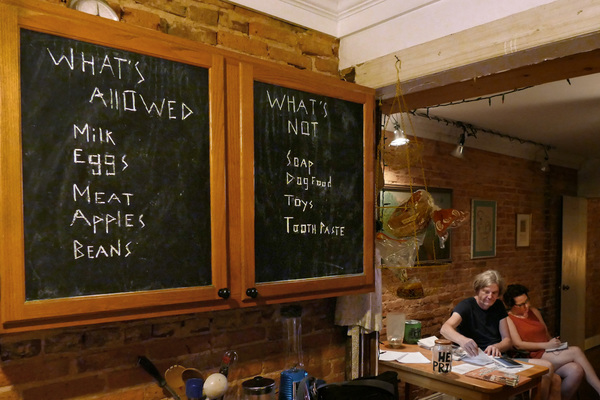 WHAT'S
AllOWED
Milk
Eggs
MEAT
APPlES
BEANS
WHAT'S
NOT
SOAP
Dog Food
Toys
TOOTH PASTE
HE
PRI